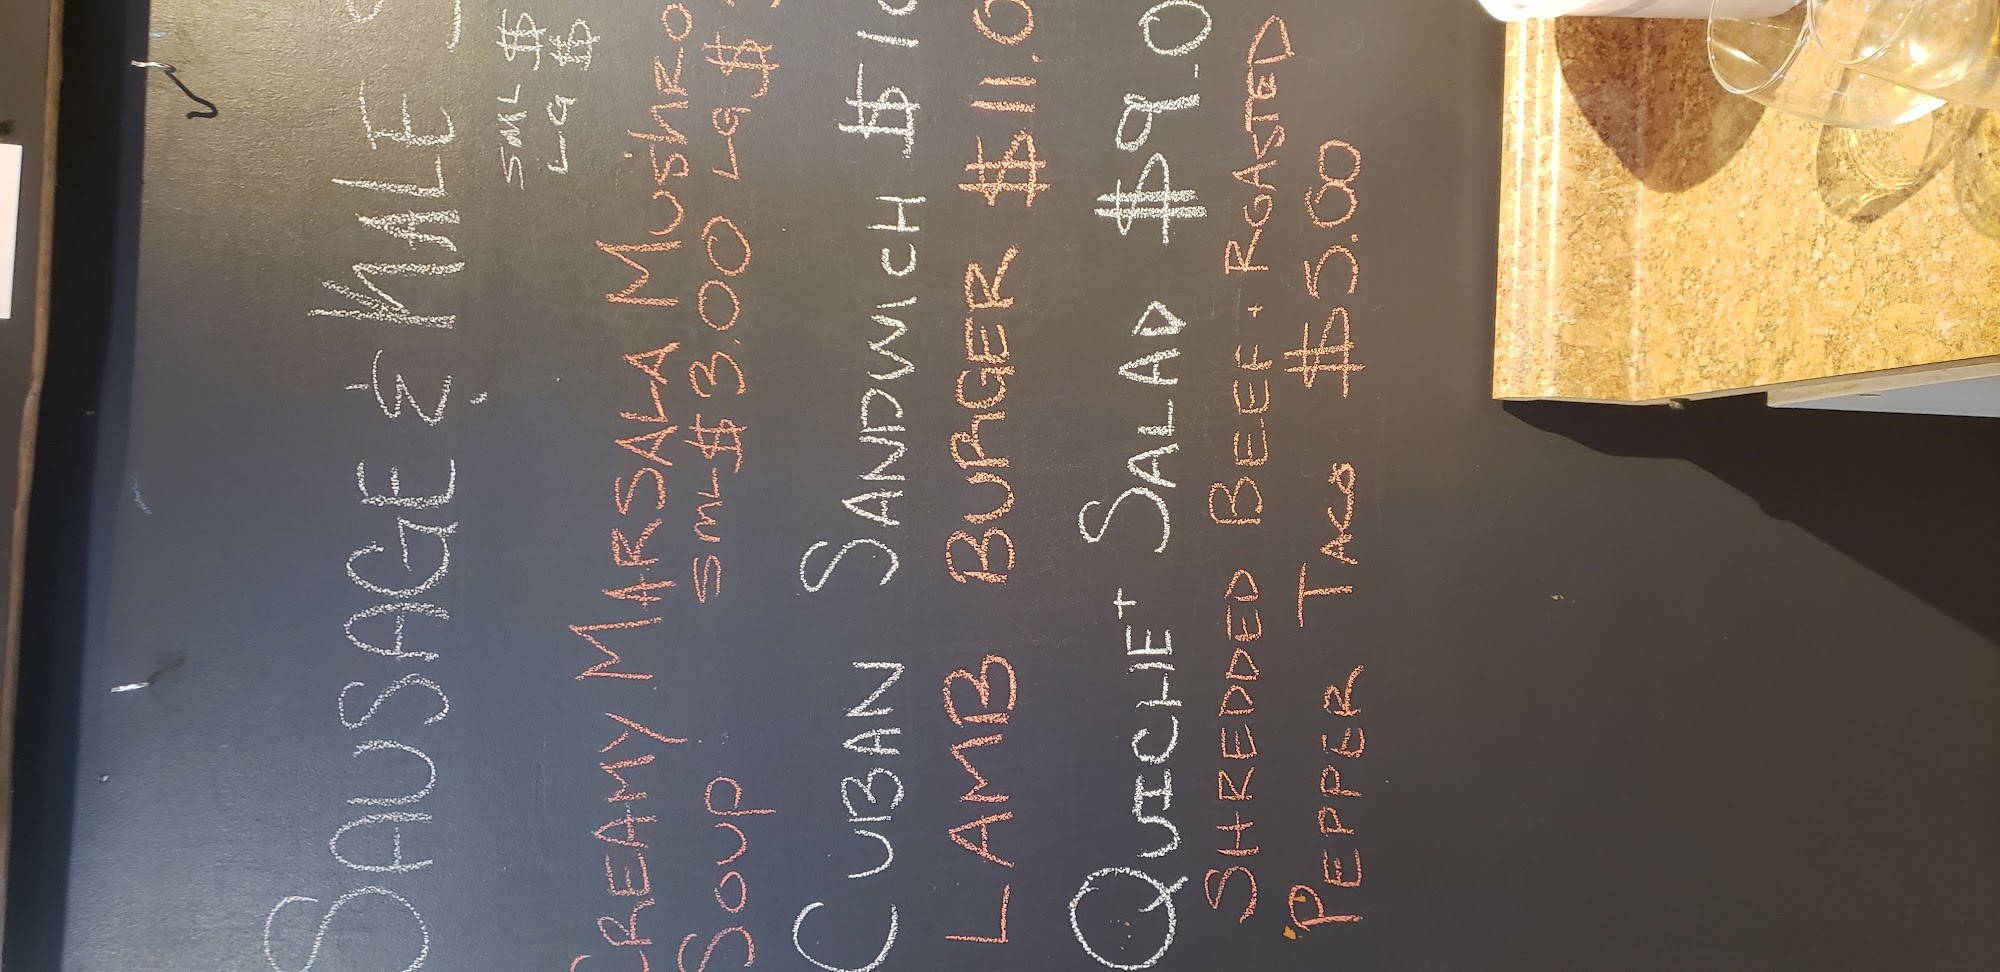 SAUSAGE & KALE S
SML $
LG $
CREAMY MARSALA MUSHRO
SOUP SML $3.00 LG $
CUBAN SANDWICH $10
LAMB BURGER $11.0
QUICHE + SALAD $9.0
SHREDDED BEEF + ROASTED
PEPPER TACO $5.00